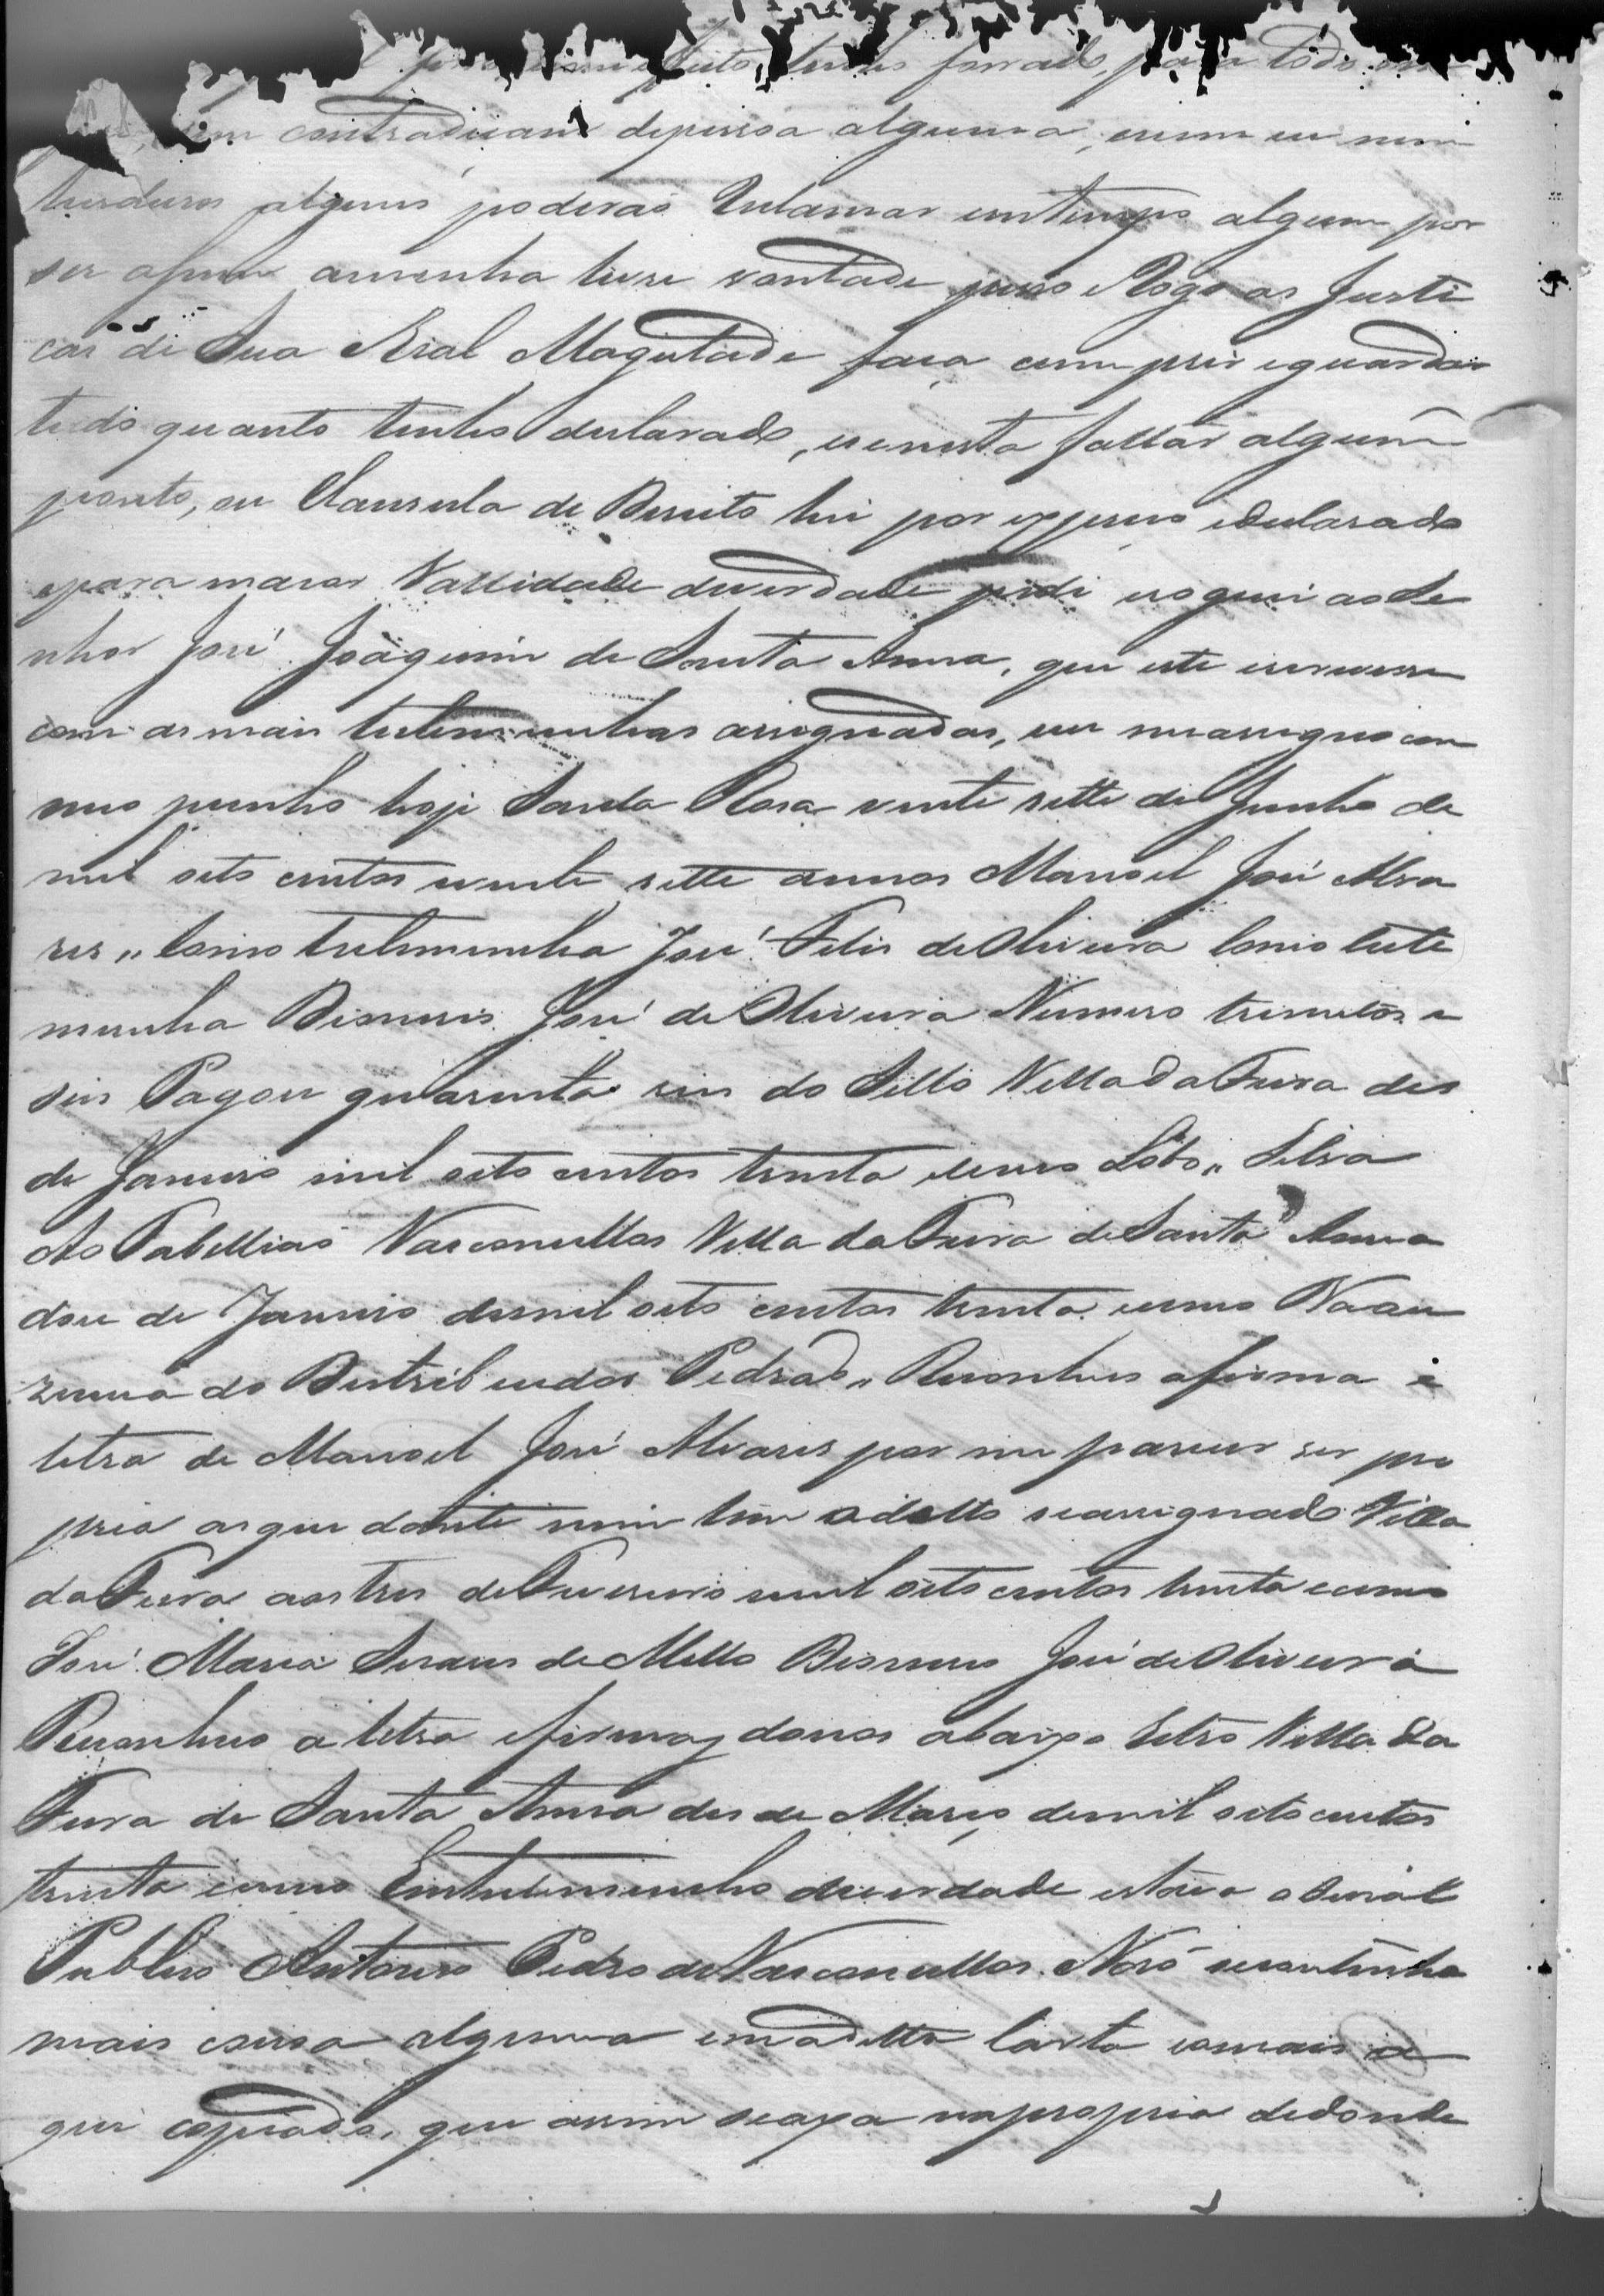 tenho forrado, para todo
sem contradicam depessoa alguma, enem eu nem
herdeiros alguns poderaõ Reclamar emtempo algum por
ser afirme aminha livre vontade pesso eRogo as Justi
cas de Sua Real Magestade faca cumprir eguardar
tudo quanto tenho declarado, esenesta faltar algum
ponto, ou Clausula de Direito hei por expreco edeclarado
epara maior Vallidade deverdade pedi eroguei aoSe
nhor José Joaquim de Santa Anna, que este escrevesse
com asmais testemunhas assignadas, eeu meassigno com
meo punho hoje Santa Rosa vente sette de Junho de
mil oito centos evente sette annos Manoel José Alva
res,, Como testemunha José Felis deOliveira Como teste
munha Dionizio José deOliveira Numero trinta e
seis Pagou quarenta reis do Sello Villa da Feira des
de Janeiro mil oito centos trenta eeum Lobo,, Silva
Ao Tabelliaõ Vasconcellos Villa da Feira de Santa Anna
dose de Janeiro demil oito centos trenta eeum Naau
zencia do Destribuidor Pedrad,, Reconheco afirma e
letra de Manoel José Alvares por me parecer ser pro
pria asque dante mim tem oditto seassignado Villa
da Feira aostres deFevereiro mil oito centos trenta eeum
José Maria de Mello Dionizio José deOliveira
Reconheco a letra efirmas donos abaixo Retro Villa da
Feira de Santa Anna des de Março demil oito centos
trenta eeum Emtestemunho deverdade estava oSignal
Publico Antonio Pedro deVasconcellos. Naõ secontinha
mais cousa alguma emaditta Carta eomais a
qui copiado, que assim seaxa napropria dedonde